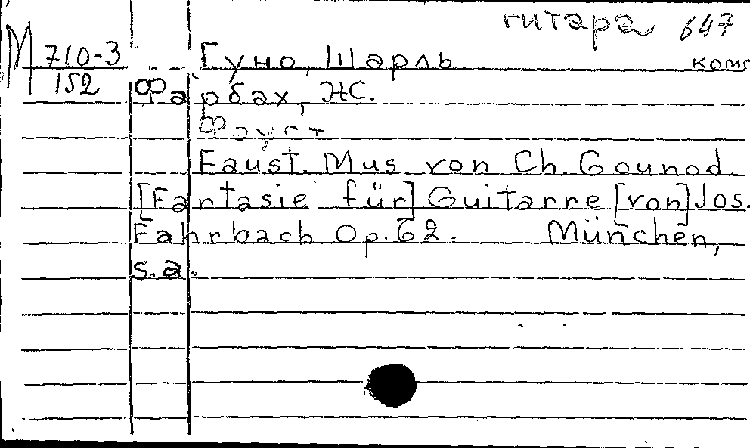 гитара 647
М 710-3 Гуно, Шарль
152 комп
Фарбах, Ж.
Фауст
Faust. Mus. von Ch. Gounod
[Fantasie für] Guitarre [von] Jos.
Fahrbach Op. 62. München,
s.a.